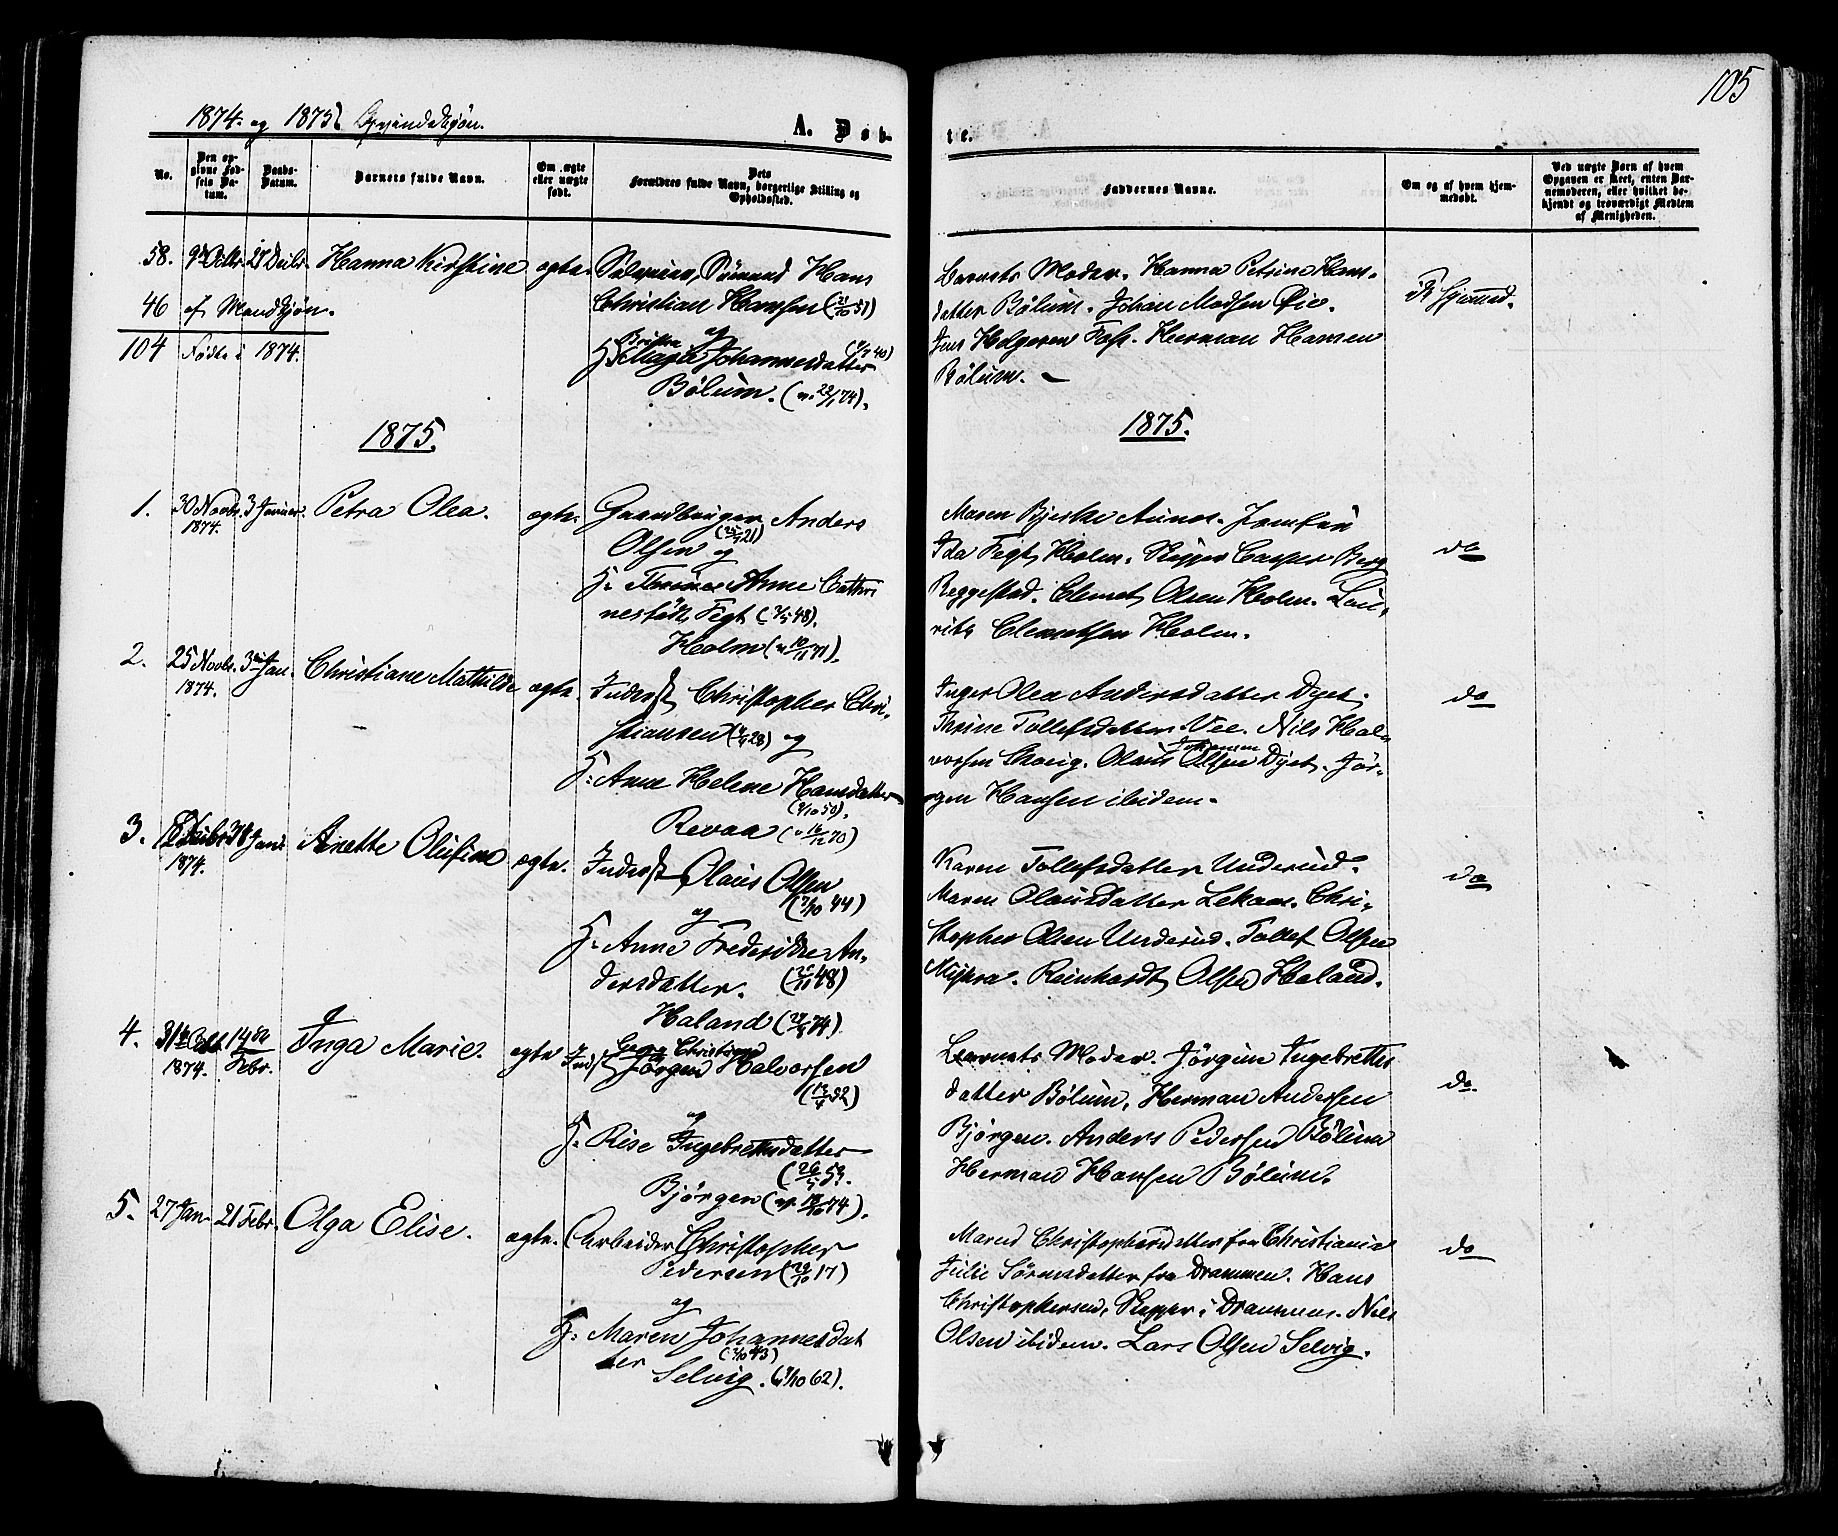 105
1874 og 1875 Qvindekjøn.
A. Døb-
te.
No.
Den op-
givne Fød-
sels Da-
tum.
Daabs-
Datum.
Barnets fulde Navn.
Om ægte
eller uægte
født.
Dets
Forældres fulde Navn, borgerlige Stilling og
Opholdssted.
Faddernes Navne.
Om og af hvem hjem-
medøbt.
Ved uægte Børn af hvem
Opgaven er skeet, enten Bar-
nemoderen, eller hvilket be-
kjendt og troværdigt Medlem
af Menigheden.
58. 9de Octbr. 27 Decbr. Hanna Kirstine ægte. Sømand Hans
Christian Hansen (21/10 51)
og
H. Maria Johannesdatter
Bølum. (v. 22/1 74).
Barnets Moder. Hanna Petrine Hans-
datter Bølum. Johan Madsen Øie.
Jens Holgersen Foss. Herman Hansen
Bølum. —
46 af Mandkjøn.
104 Fødte i 1874.
1875.
1875.
1. 30 Novbr. 1874. 3 Januar. Petra Olea. ægte. Gaardbruger Anders
Olsen og
H. Anne Cathri
nefødt Fegt (7/5 48).
Holm (v. 10/11 71).
Maren Bjerke Aunes. Jomfru
Ida Fegt, Holm. Skipper Casper Berg
Reggestad. Clemet Olsen Holm. Lau-
rits Clemetsen Holm.
do
2. 25 Novbr. 1874. 3die Jan. Christiane Mathilde ægte. Inderst Christopher Chri-
stiansen og
H: Anne Helene Hansdatter
(9/10 50).
Revaa (v 16/12 70)
Inger Olea Andersdatter Dyet.
Thrine Tollefsdatter Vee. Nils Hal-
vorsen Skoug. Olaus Olsen Dyet. Jør-
gen Hansen ibidem.
do
3. 1874. Anette Olufine ægte. Inderst Olaus Olsen
(7/10 44)
og
H: Anne Fredrikke An-
dersdatter. (25/11 48)
Haland
Karen Tollefsdatter Underud.
Maren Olausdatter Lekaas. Chri-
stopher Olsen Underud. Tollef Olsen
Reinhardt Olsen Haland.
do
4. 31te Octb. 1874. 14de Febr. Inga Marie. ægte Indst Jørgen Halvorsen
(13/4 52)
og
H: Rise Ingebretsdatter
(26/5 53.
Bjørgen (v. 18/10 74).
Barnets Moder. Jørgine Ingebretts
datter Bølum. Herman Andersen
Bjørgen. Anders Pedersen Bølum
Herman Hansen Bølum.
do.
5. 27 Jan. 21 Febr. Olga Elise. ægte. Arbeider Christopher
Pedersen (29/10 17)
og
H: Maren Johannesdat
ter (2/10 43)
Selvig. (4/10 62).
Maren Christophersdatter fra Christiania
Julie Sørensdatter fra Drammen. Hans
Christophersen, Skipper i Drammen. Nils
Olsen ibidem. Lars Olsen Selvig.
do